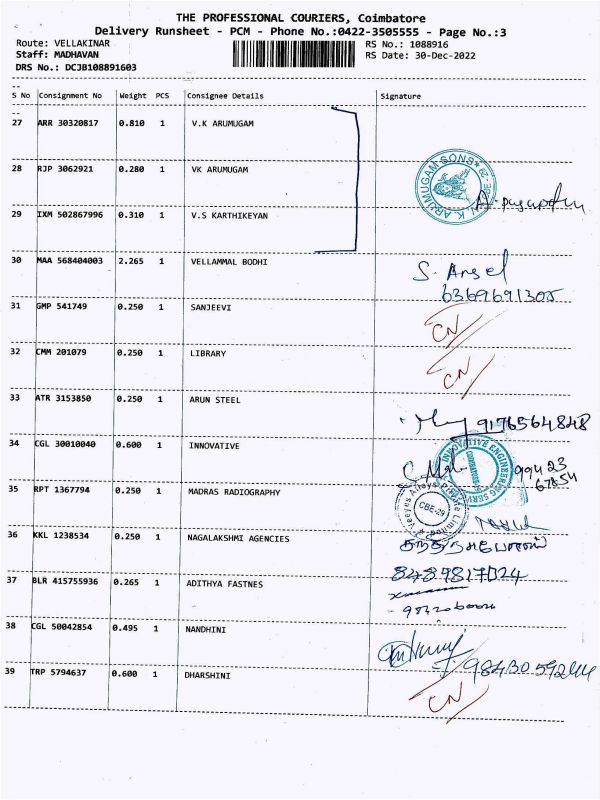 THE PROFESSIONAL COURIERS, Coimbatore
Delivery Runsheet - PCM - Phone No.:0422-3505555 - Page No.:3
Route: VELLAKINAR
RS No.: 1088916
Staff: MADHAVAN
RS Date: 30-Dec-2022
DRS No.: DCJB108891603
S No Consignment No Weight PCS Consignee Details Signature
27 ARR 30320817 0.810 1 V.K ARUMUGAM
28 RJP 3062921 0.280 1 VK ARUMUGAM
V.K. ARUMUGAM SONS
29 IXM 502867996 0.310 1 V.S KARTHIKEYAN
30 MAA 568404003 2.265 1 VELLAMMAL BODHI
S. Angel
6369691305
31 GMP 541749 0.250 1 SANJEEVI CN
32 CMM 201079 0.250 1 LIBRARY CN
33 ATR 3153850 0.250 1 ARUN STEEL
9176564848
34 CGL 30010040 0.600 1 INNOVATIVE
INNOVATIVE ENGINEERING SERV
99423
67654
35 RPT 1367794 0.250 1 MADRAS RADIOGRAPHY
Veejay Arrays Private Limited
CBE-29
36 KKL 1238534 0.250 1 NAGALAKSHMI AGENCIES
37 BLR 415755936 0.265 1 ADITHYA FASTNES
8489817024
38 CGL 50042854 0.495 1 NANDHINI
39 TRP 5794637 0.600 1 DHARSHINI
CN